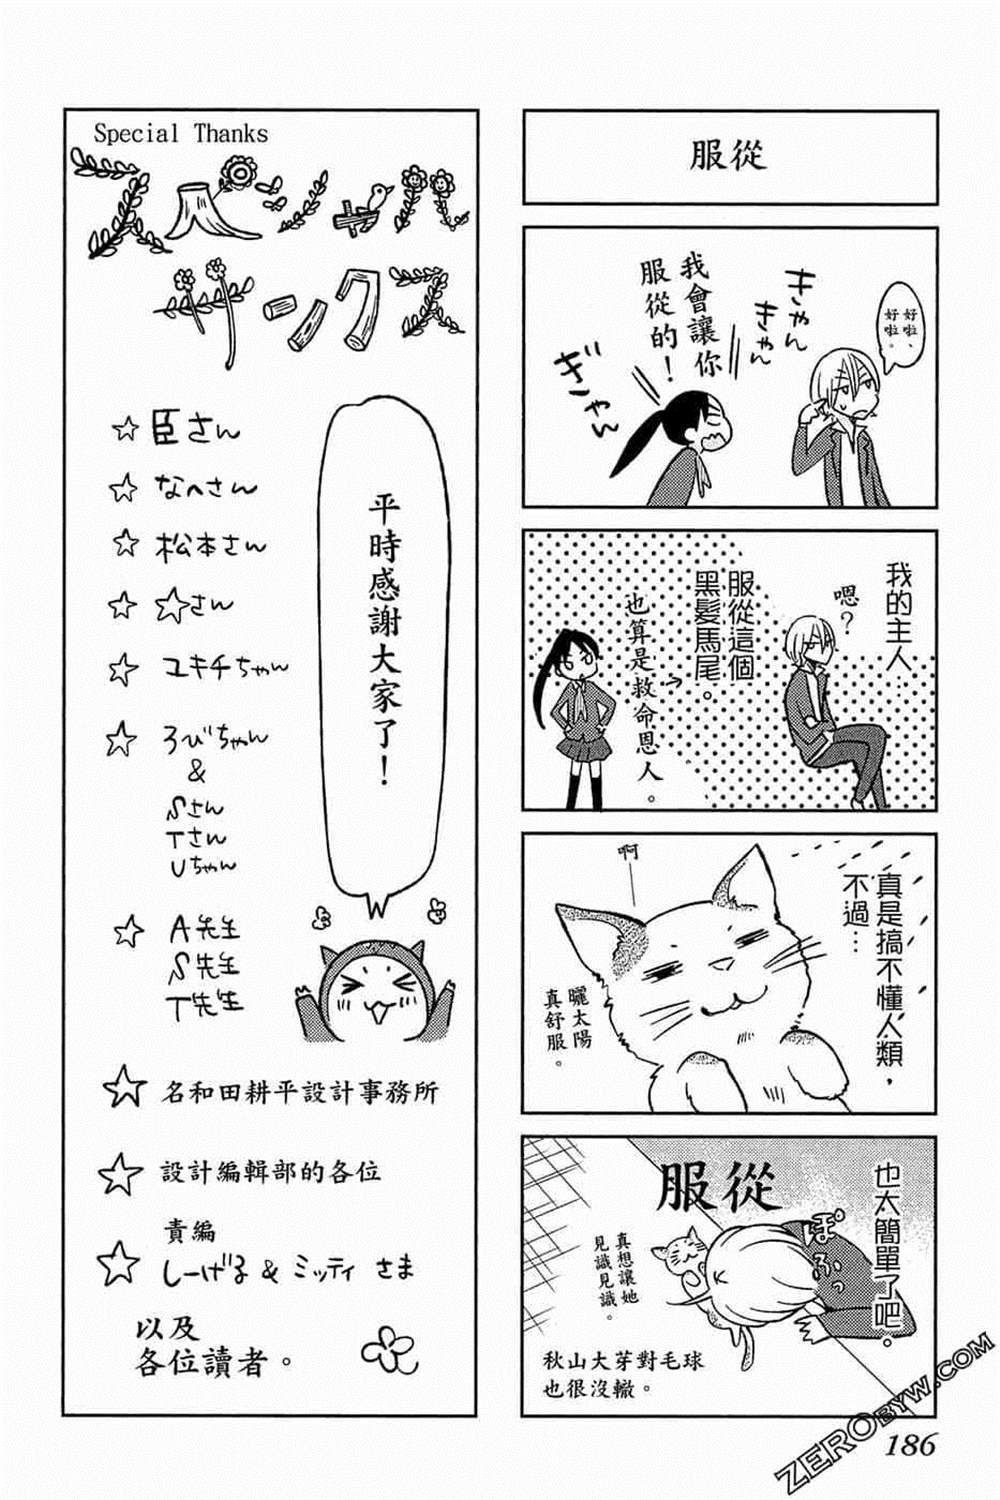 服從
好啦、
好啦。
きゃん
きゃん
我會讓你
服從的！
ぎゃん
我的主人…
嗯？
服從這個
黑髮馬尾。
也算是救命恩人。
真是搞不懂人類，
不過…
啊
曬太陽
真舒服。
也太簡單了吧。
ぽふっ
服從
真想讓她
見識見識。
秋山大芽對毛球
也很沒轍。
Special Thanks
スペシャル
サンクス
平時感謝大家了！
☆臣さん
☆なへさん
☆松本さん
☆☆さん
☆ユキチちゃん
☆ろびちゃん
&
Sさん
Tさん
Uちゃん
☆A先生
S先生
T先生
☆名和田耕平設計事務所
☆設計編輯部的各位
責編
☆しーげる & ミッティ さま
以及
各位讀者。
186
ZEROBYW.COM